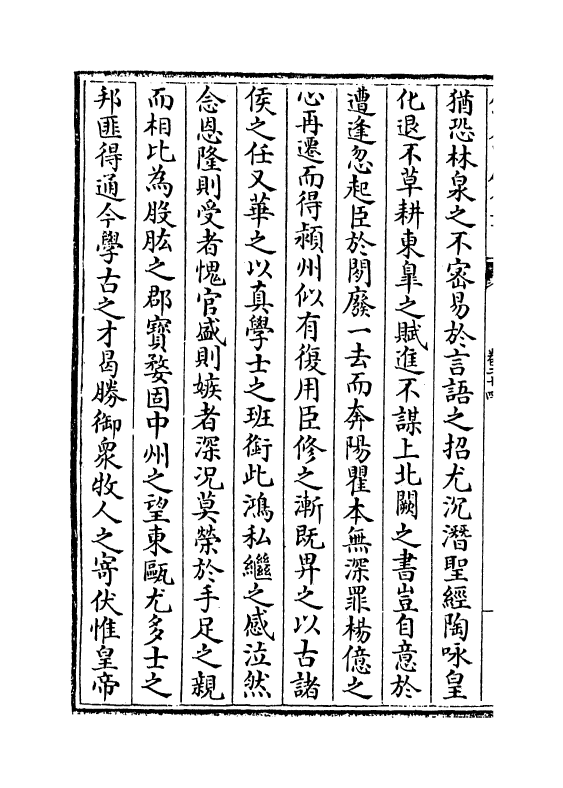 卷二十四
猶恐林泉之不密易於言語之招尤沉潛聖經陶咏皇
化退不草耕東皐之賦進不謀上北闕之書豈自意於
遭逢忽起臣於閒廢一去而奔陽瞿本無深罪楊億之
心再遷而得潁州似有復用臣修之漸既畀之以古諸
侯之任又華之以真學士之班銜此鴻私繼之感泣然
念恩隆則受者愧官盛則嫉者深况莫榮於手足之親
而相比為股肱之郡寶婺固中州之望東甌尤多士之
邦匪得通今學古之才曷勝御衆牧人之寄伏惟皇帝